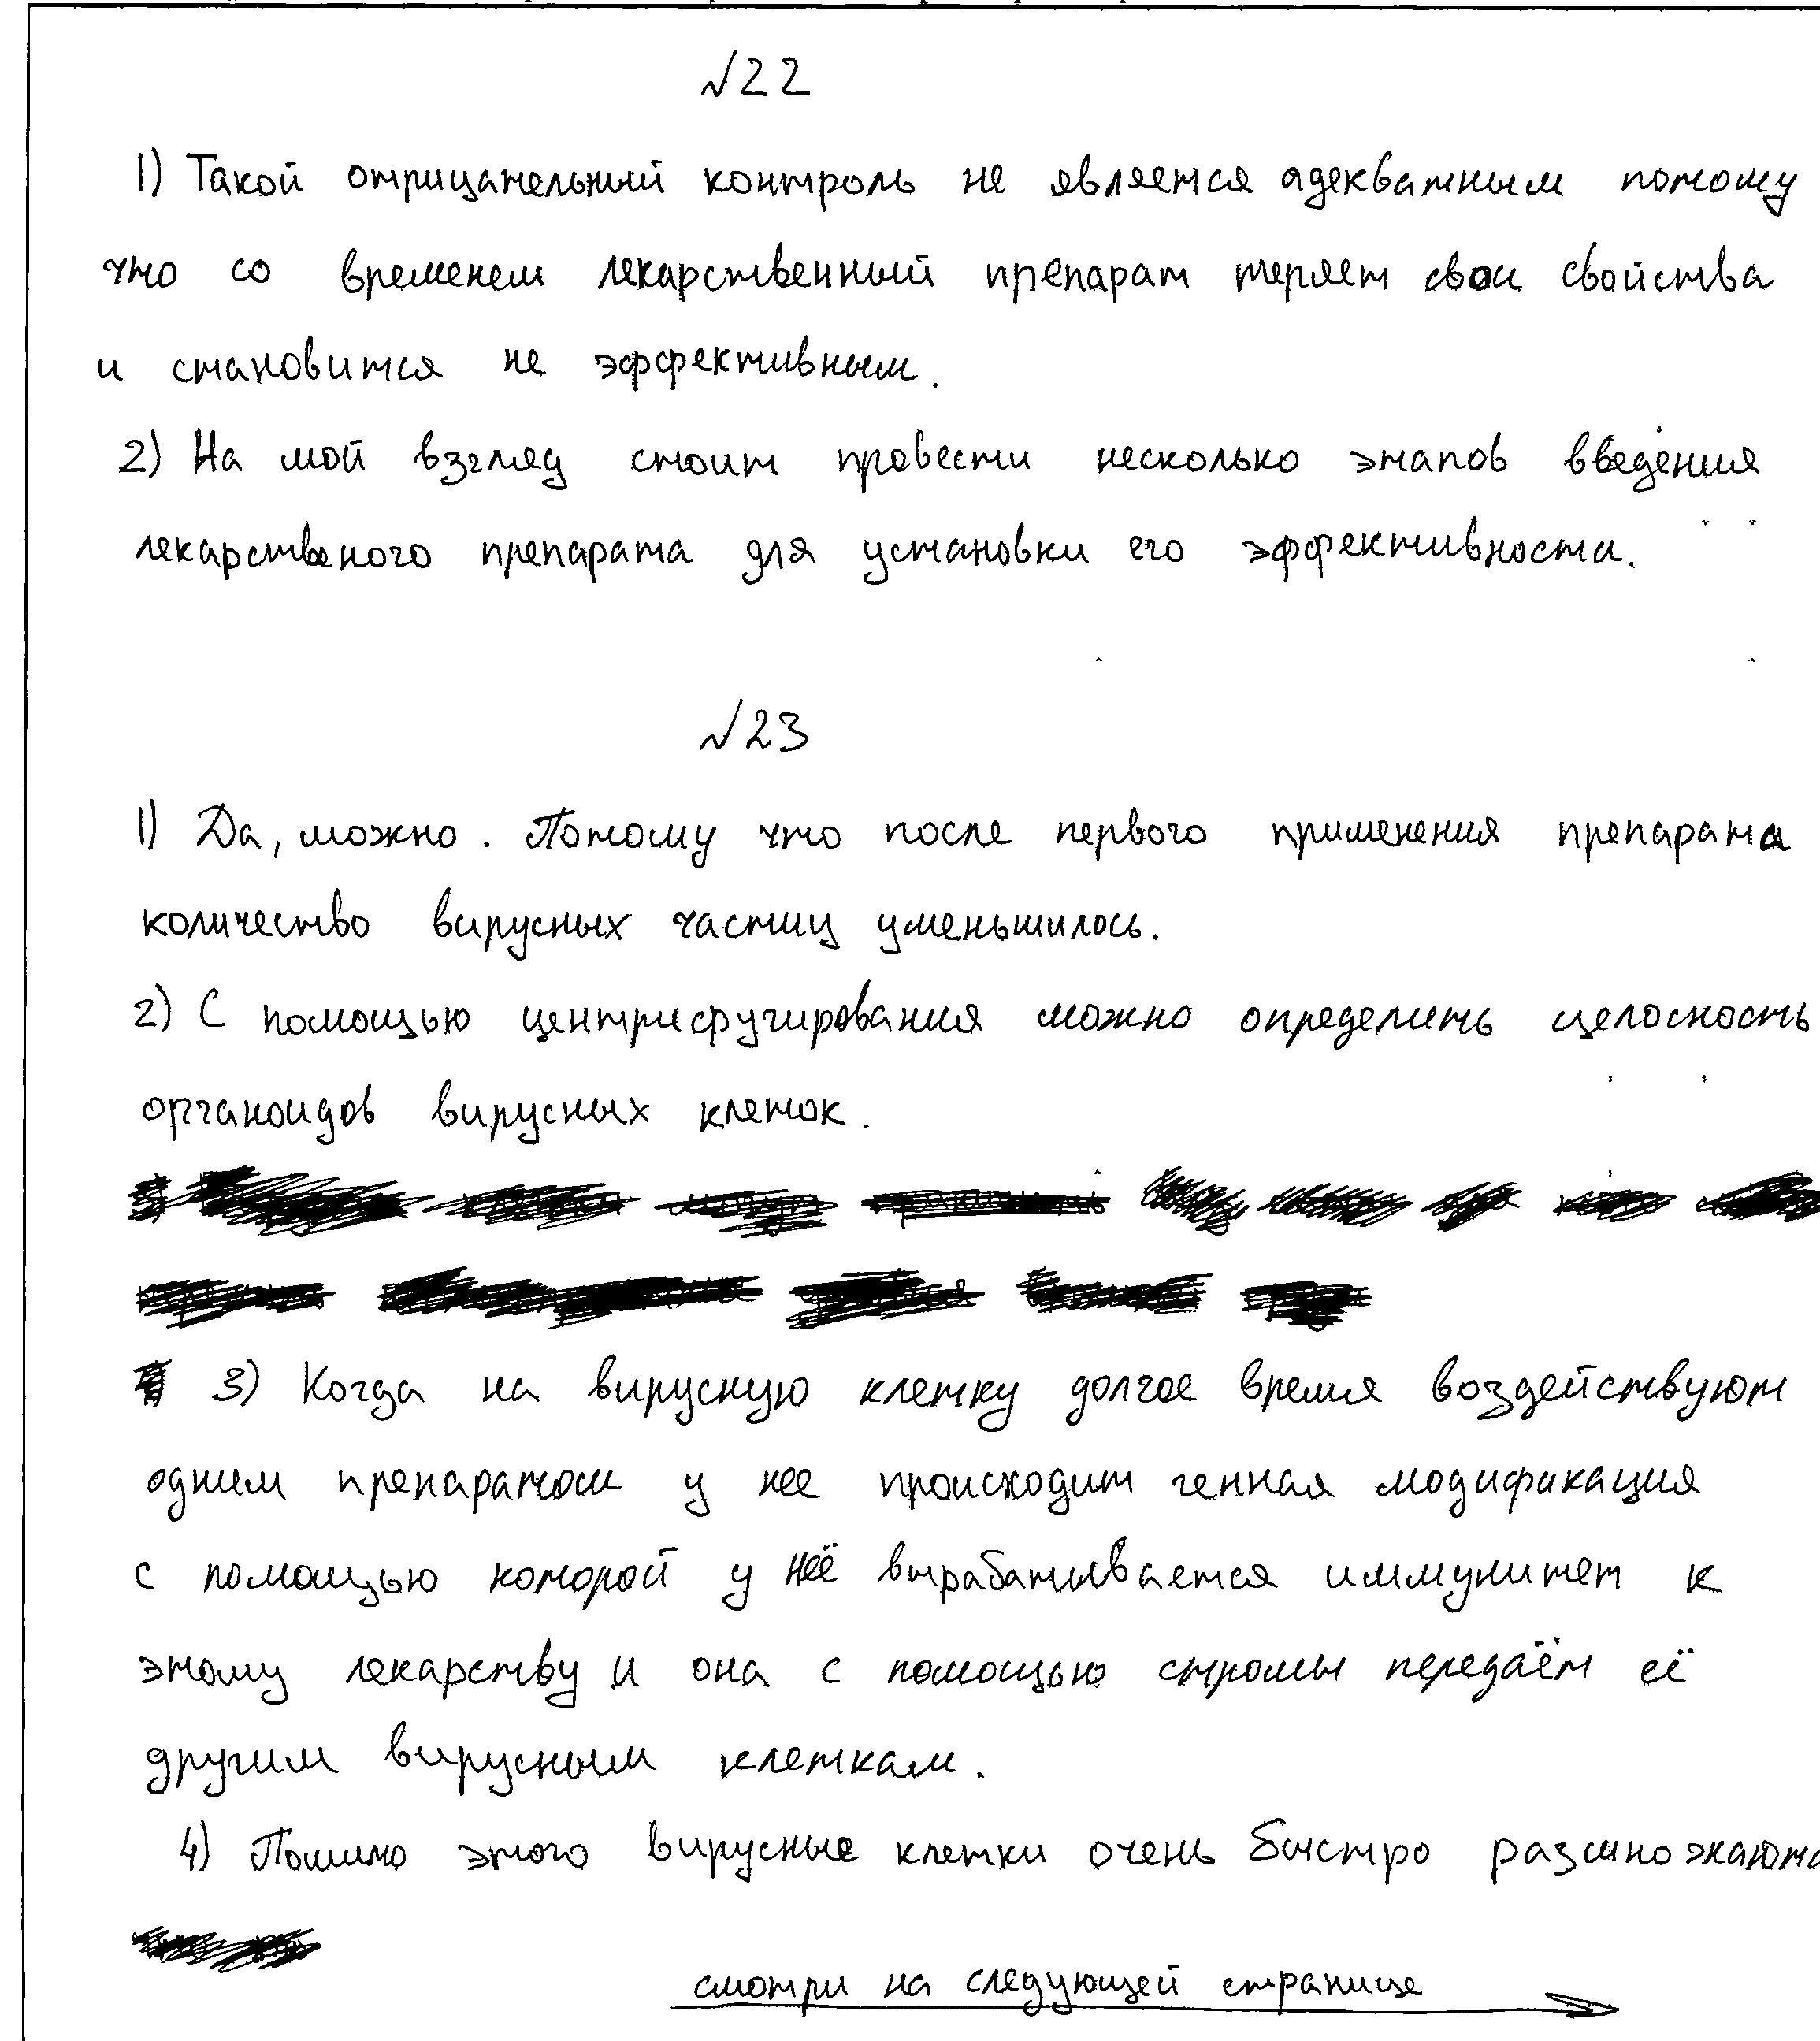 №22
1) Такой отрицательный контроль не является адекватным потому
что со временем лекарственный препарат теряет свои свойства
и становится не эффективным.
2) На мой взгляд стоит провести несколько этапов введения
лекарственого препарата для установки его эффективности.
№23
1) Да, можно. Потому что после первого применения препарата
количество вирусных частиц уменьшилось.
2) С помощью центрифугирования можно определить целосность
органоидов вирусных клеток.
3) Когда на вирусную клетку долгое время воздействуют
одним препаратом у нее происходит генная модификация
с помощью которой у неё вырабатывается иммунитет к
этому лекарству и она с помощью стромы передаёт её
другим вирусным клеткам.
4) Помимо этого вирусные клетки очень быстро размножаются
смотри на следующей странице